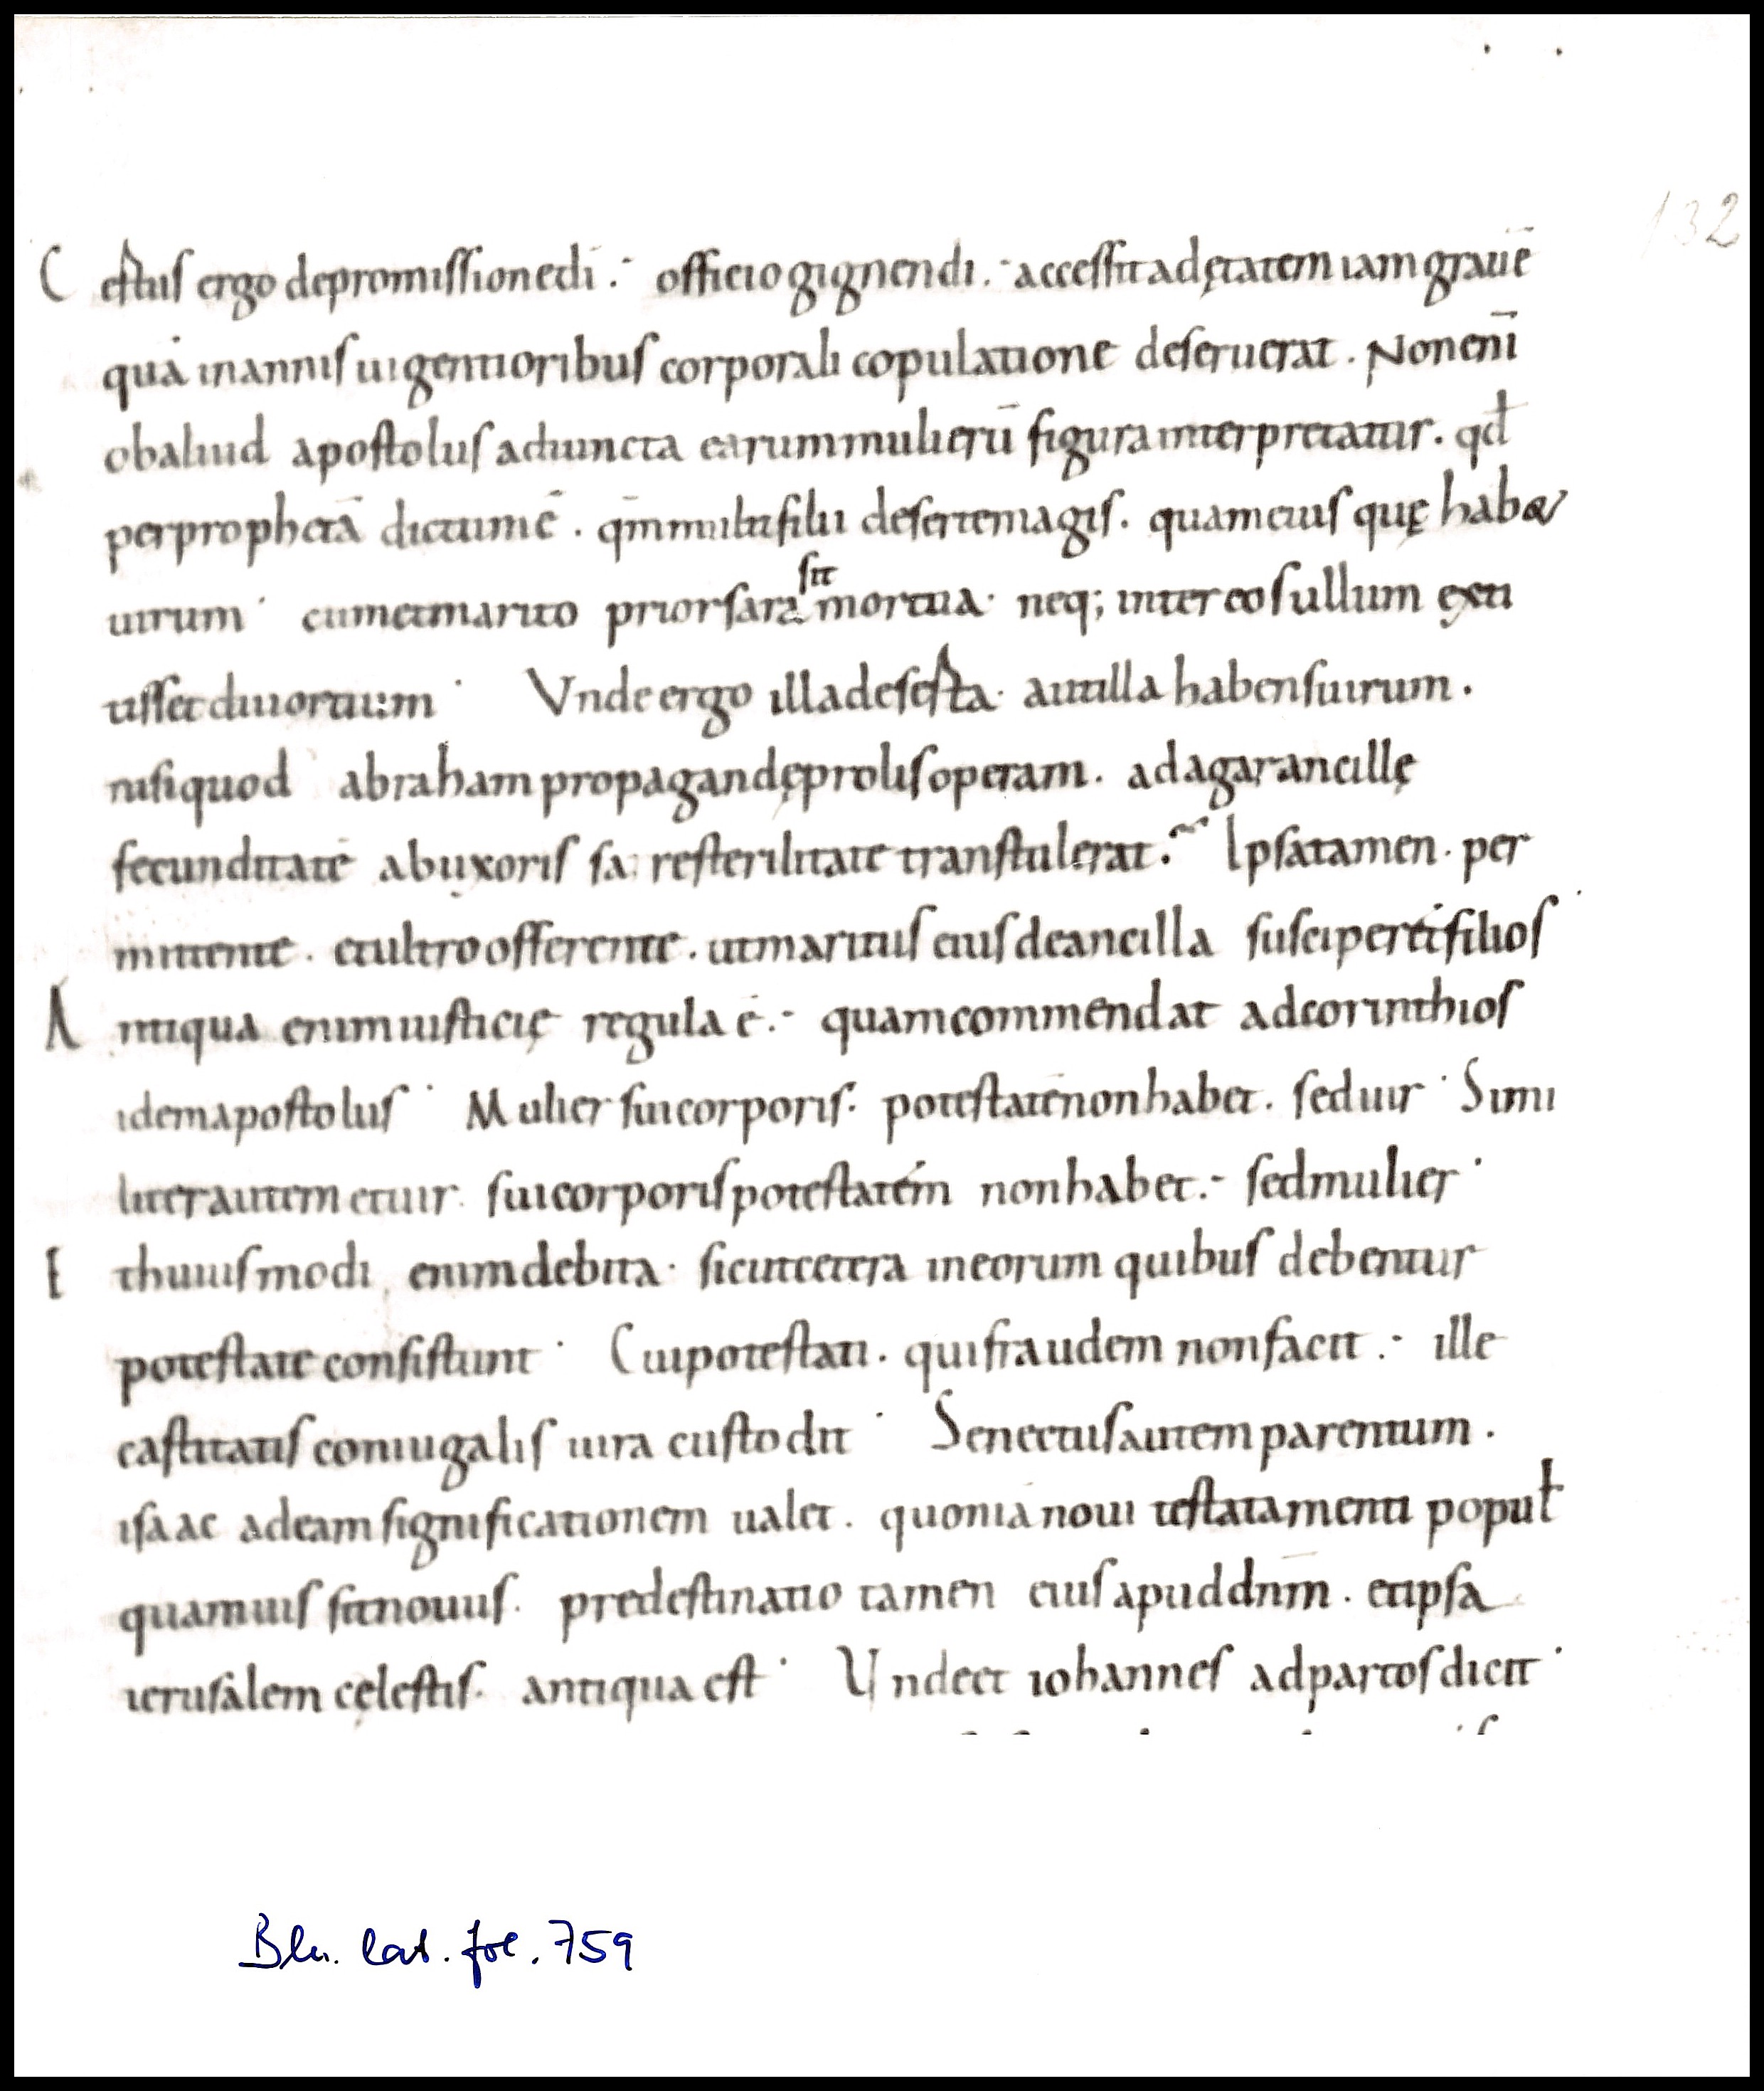 132
Certus ergo de promissione dī. officio gignendi. accessit ad ętatem iam grauē
quā in annis uigentioribus corporali copulatione deseruerat. Non enī
ob aliud apostolus adiuncta earum mulierū figura interpretatur. qđ
per prophetā dictum ē. qm̄ multi filii deserte magis. quam eius quę habet
uirum. cum et marito prior sara sit mortua. neq; inter eos ullum exti
tisset diuortium. Vnde ergo illa deserta. aut illa habens uirum.
nisi quod abraham propagandę prolis operam. ad agar ancillę
fecunditatē ab uxoris sa re sterilitate transtulerat. Ipsa tamen. per
mittente. et ultro offerente. ut maritus eius de ancilla susciperet filios
Antiqua enim iusticię regula ē. quam commendat ad corinthios
idem apostolus. Mulier sui corporis. potestatē non habet. sed uir. Simi
liter autem et uir. sui corporis potestatem non habet. sed mulier.
Et huius modi enim debita. sicut cetera in eorum quibus debentur
potestate consistunt. Cui potestati. qui fraudem non facit. ille
castitatis coniugalis iura custodit. Senectus autem parentum.
isaac ad eam significationem ualet. quoniā noui testatamenti popul̄
quamuis sit nouus. predestinatio tamen eius apud dn̄m. et ipsa
ierusalem cęlestis. antiqua est. Vnde et iohannes ad partos dicit.
Bln. lat. fol. 759